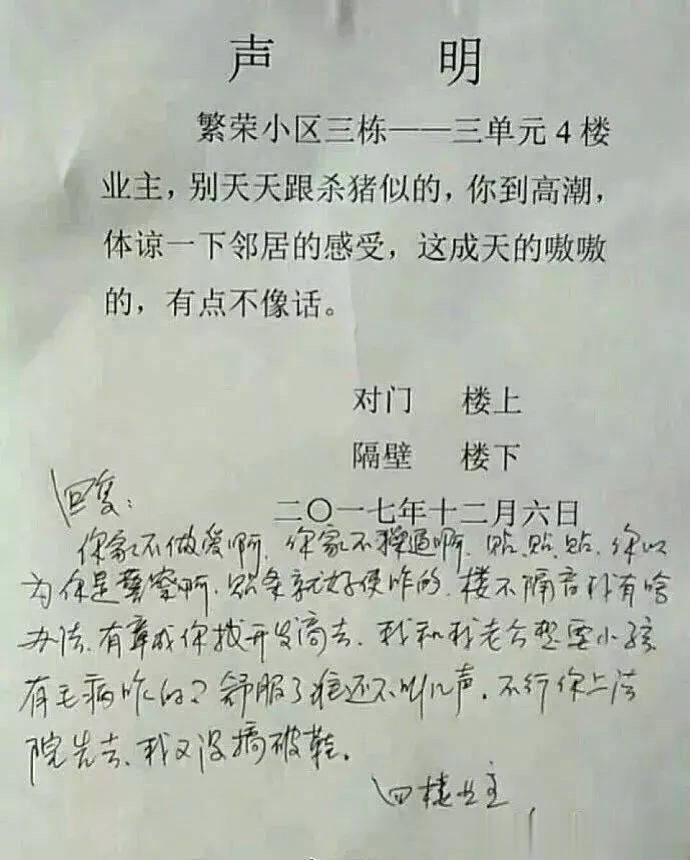 声 明
繁荣小区三栋——三单元4楼
业主，别天天跟杀猪似的，你到高潮，
体谅一下邻居的感受，这成天的嗷嗷
的，有点不像话。
对门 楼上
隔壁 楼下
二〇一七年十二月六日
回复：
你家不做爱啊，你家不操逼啊，贴，贴，贴，你以
为你是警察啊，贴条就好使咋的，楼不隔音我有啥
办法，有章成你找开发商去，我和我老公想要小孩
有毛病咋的？舒服了谁还不叫几声，不行你上法
院告去，我又没搞破鞋。
四楼业主